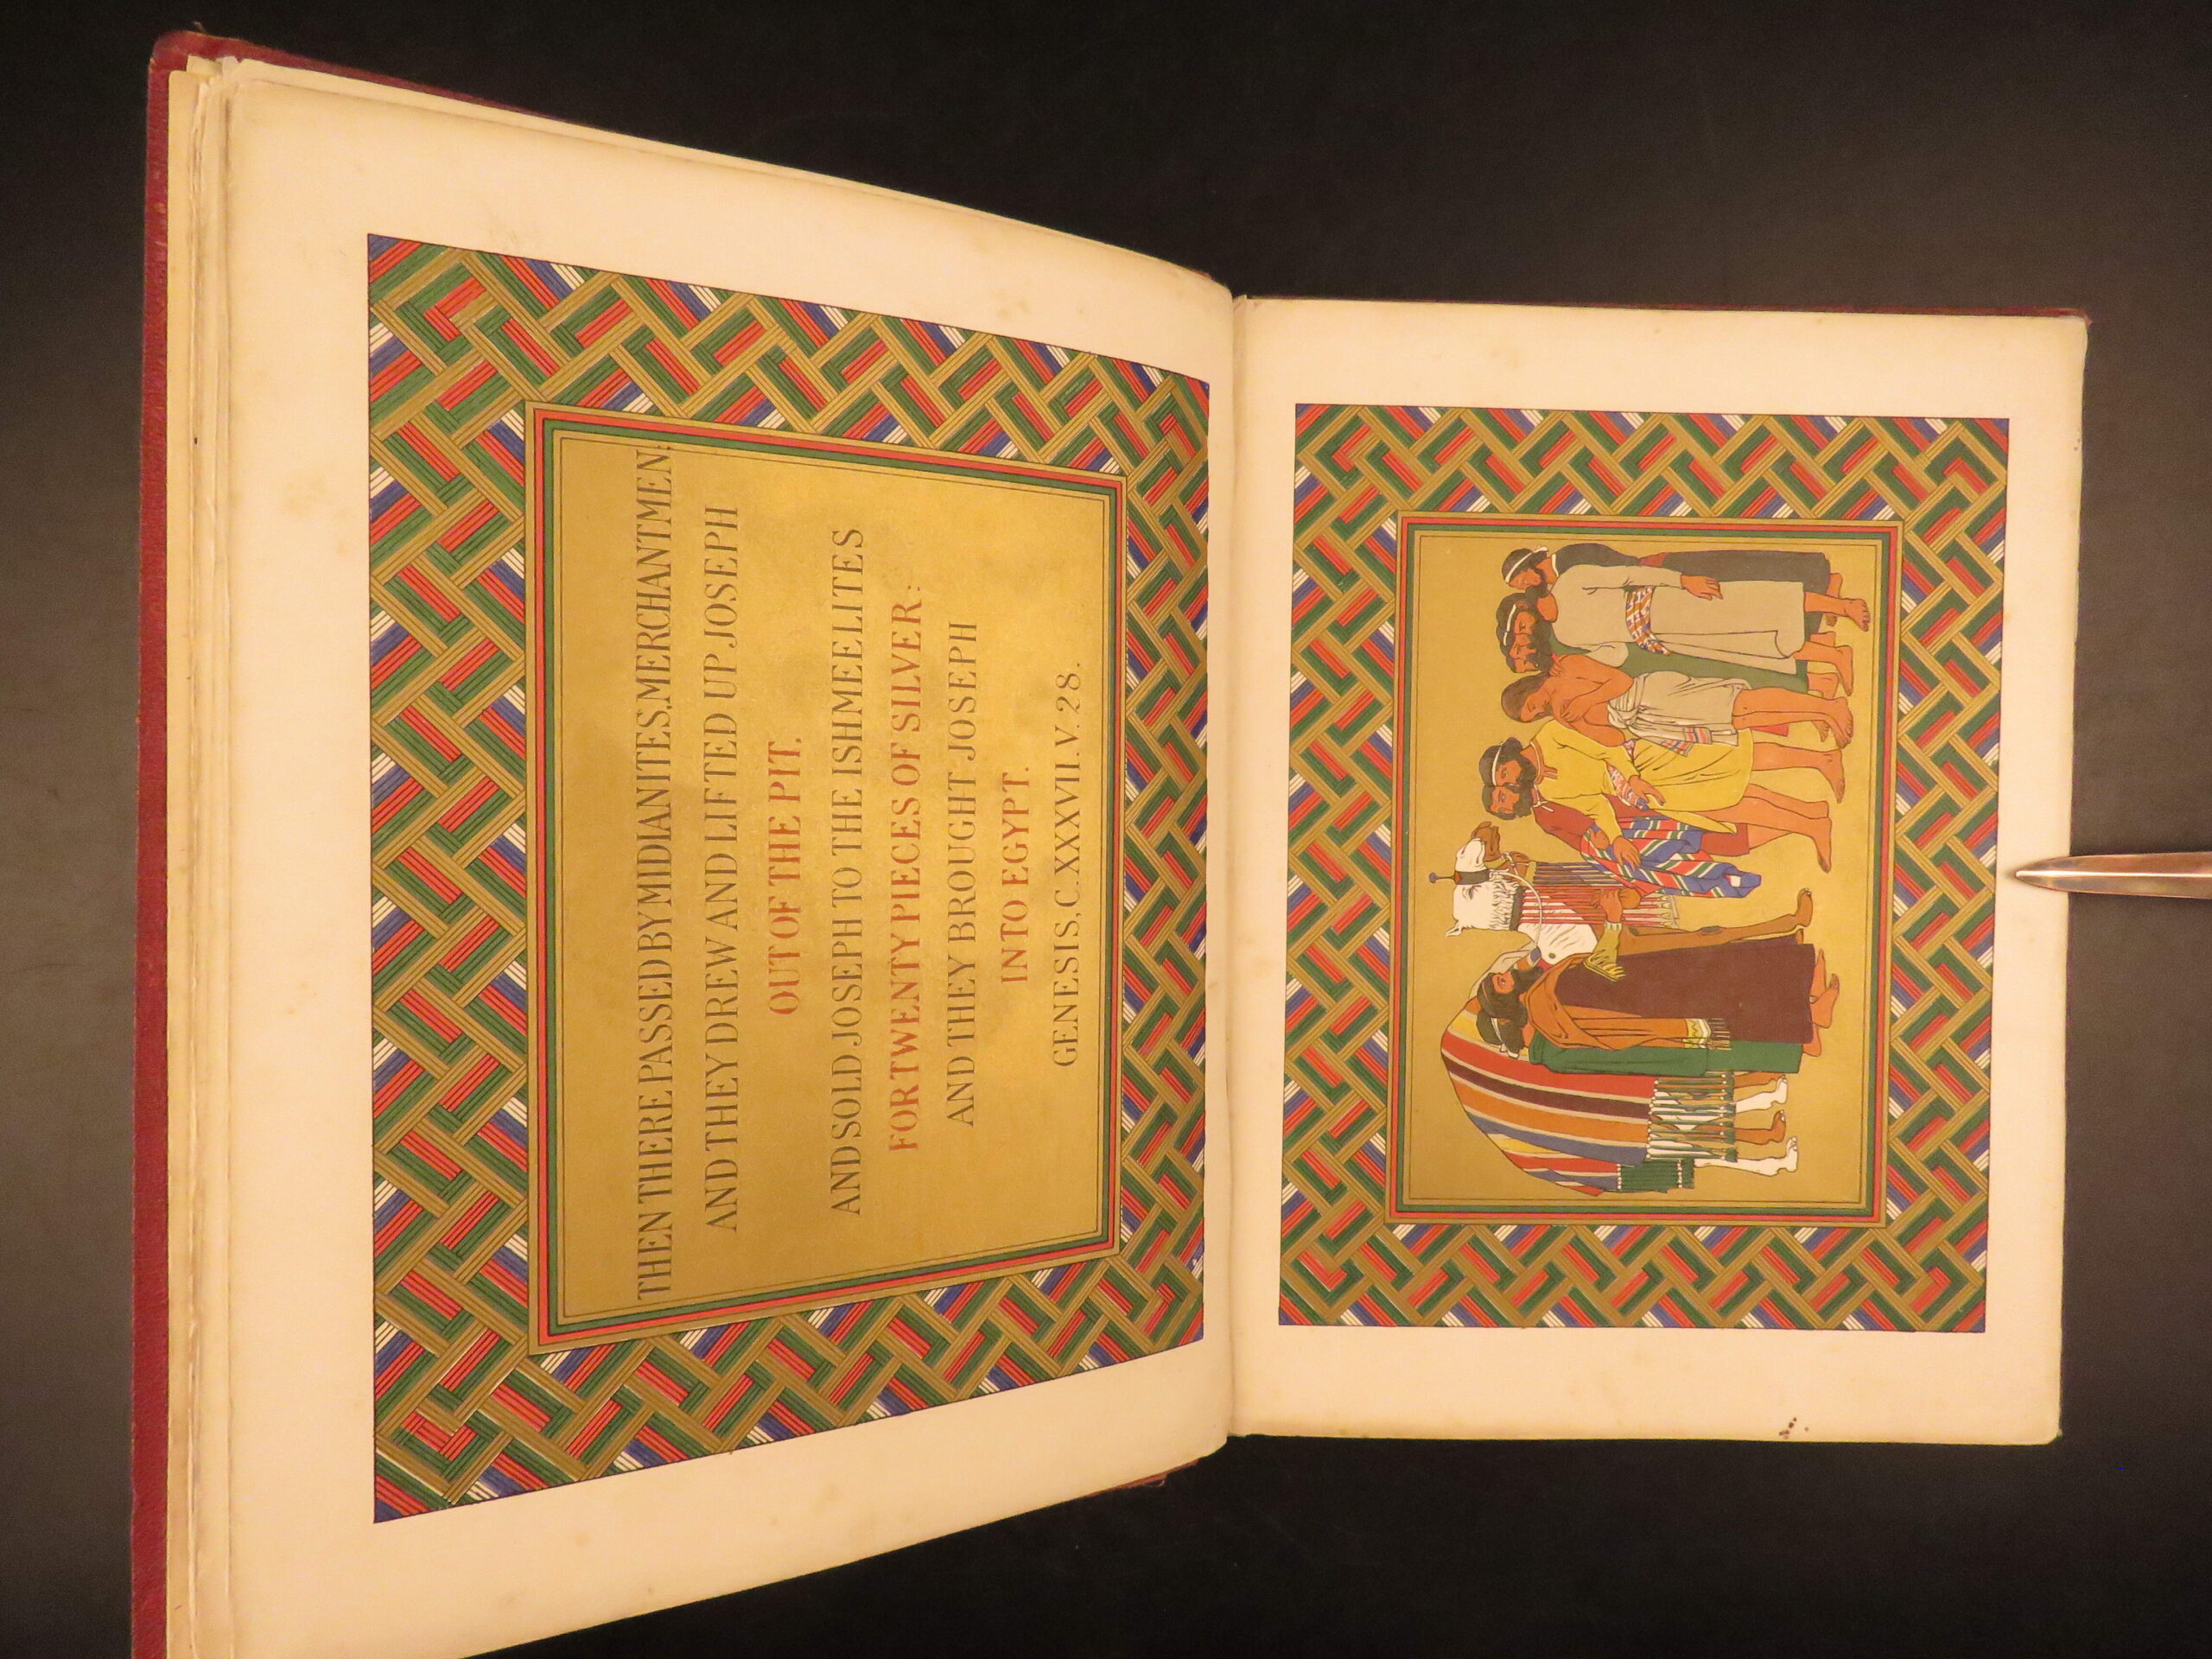 THEN THERE PASSED BY MIDIANITES, MERCHANTMEN;
AND THEY DREW AND LIFTED UP JOSEPH
OUT OF THE PIT,
AND SOLD JOSEPH TO THE ISHMEELITES
FOR TWENTY PIECES OF SILVER:
AND THEY BROUGHT JOSEPH
INTO EGYPT.
GENESIS, C. XXXVII. V. 28.